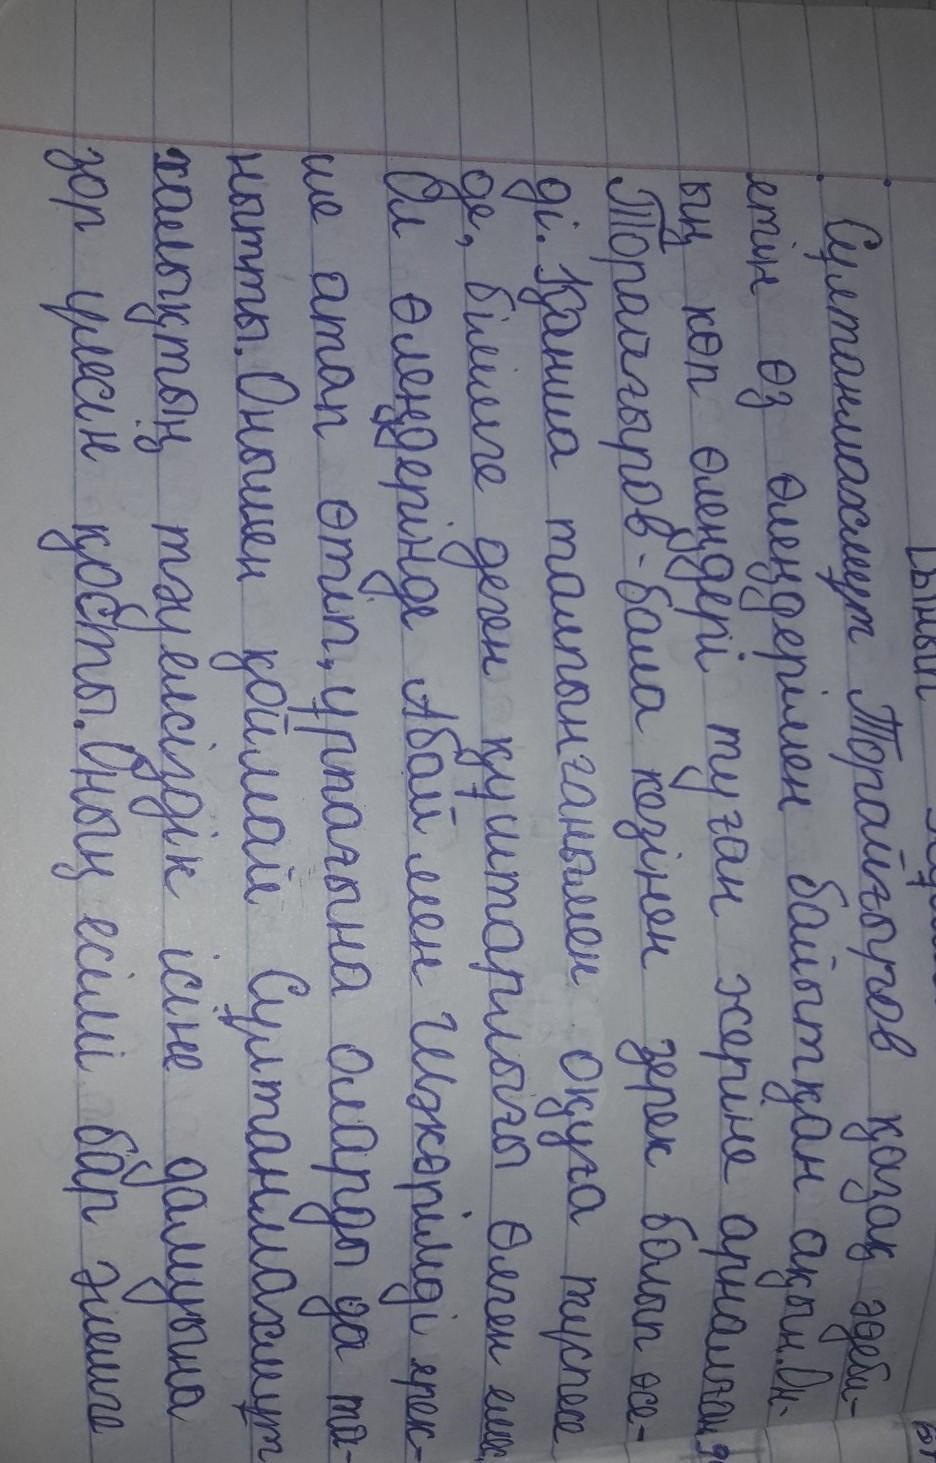 Сұлтанмахмұт Торайғыров қазақ әдеби-
етін өз өлеңдерімен байытқан ақын. Он-
ың көп өлендері туған жеріне арналған
Торайғыров-бала кезінен зерек болып өсе-
ді. Қанша талпынғанымен оқуға түспесе
де, білімге деген құштарлығы өлген емес
Ол өлеңдерінде Абай мен Шәкәрімді ерек-
ше атап өтіп, ұрпағына оларды да та-
нытты. Онымен қоймай Сұлтанмахмұт
халықтың тәуелсіздік ісіне дамуына
зор үлесін қосты. Оның есімі бар әлемге